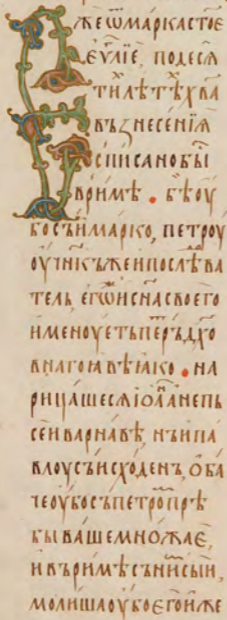 Иже ѿ марка ст҃ое
еѵ҃лїе, по деся
ти лѣтѣхъ ва
въꙁнесенїꙗ
списано бы
въ римѣ. бѣ оу
бо съи марко, петроу
оучн҃къ же и послѣдова
тель, егѡ и сн҃а своего
именоуетъ перъ дх҃о
внаго ꙗвѣ ꙗко. на
рицашеся їоан҃ непь
сеи варнавѣ, нъ и па
влоу съисходенъ, оба
че оубо съ петромъ прѣ
бываше множае,
и въ римѣ съ нимъ сыи,
молиша оубо его иже